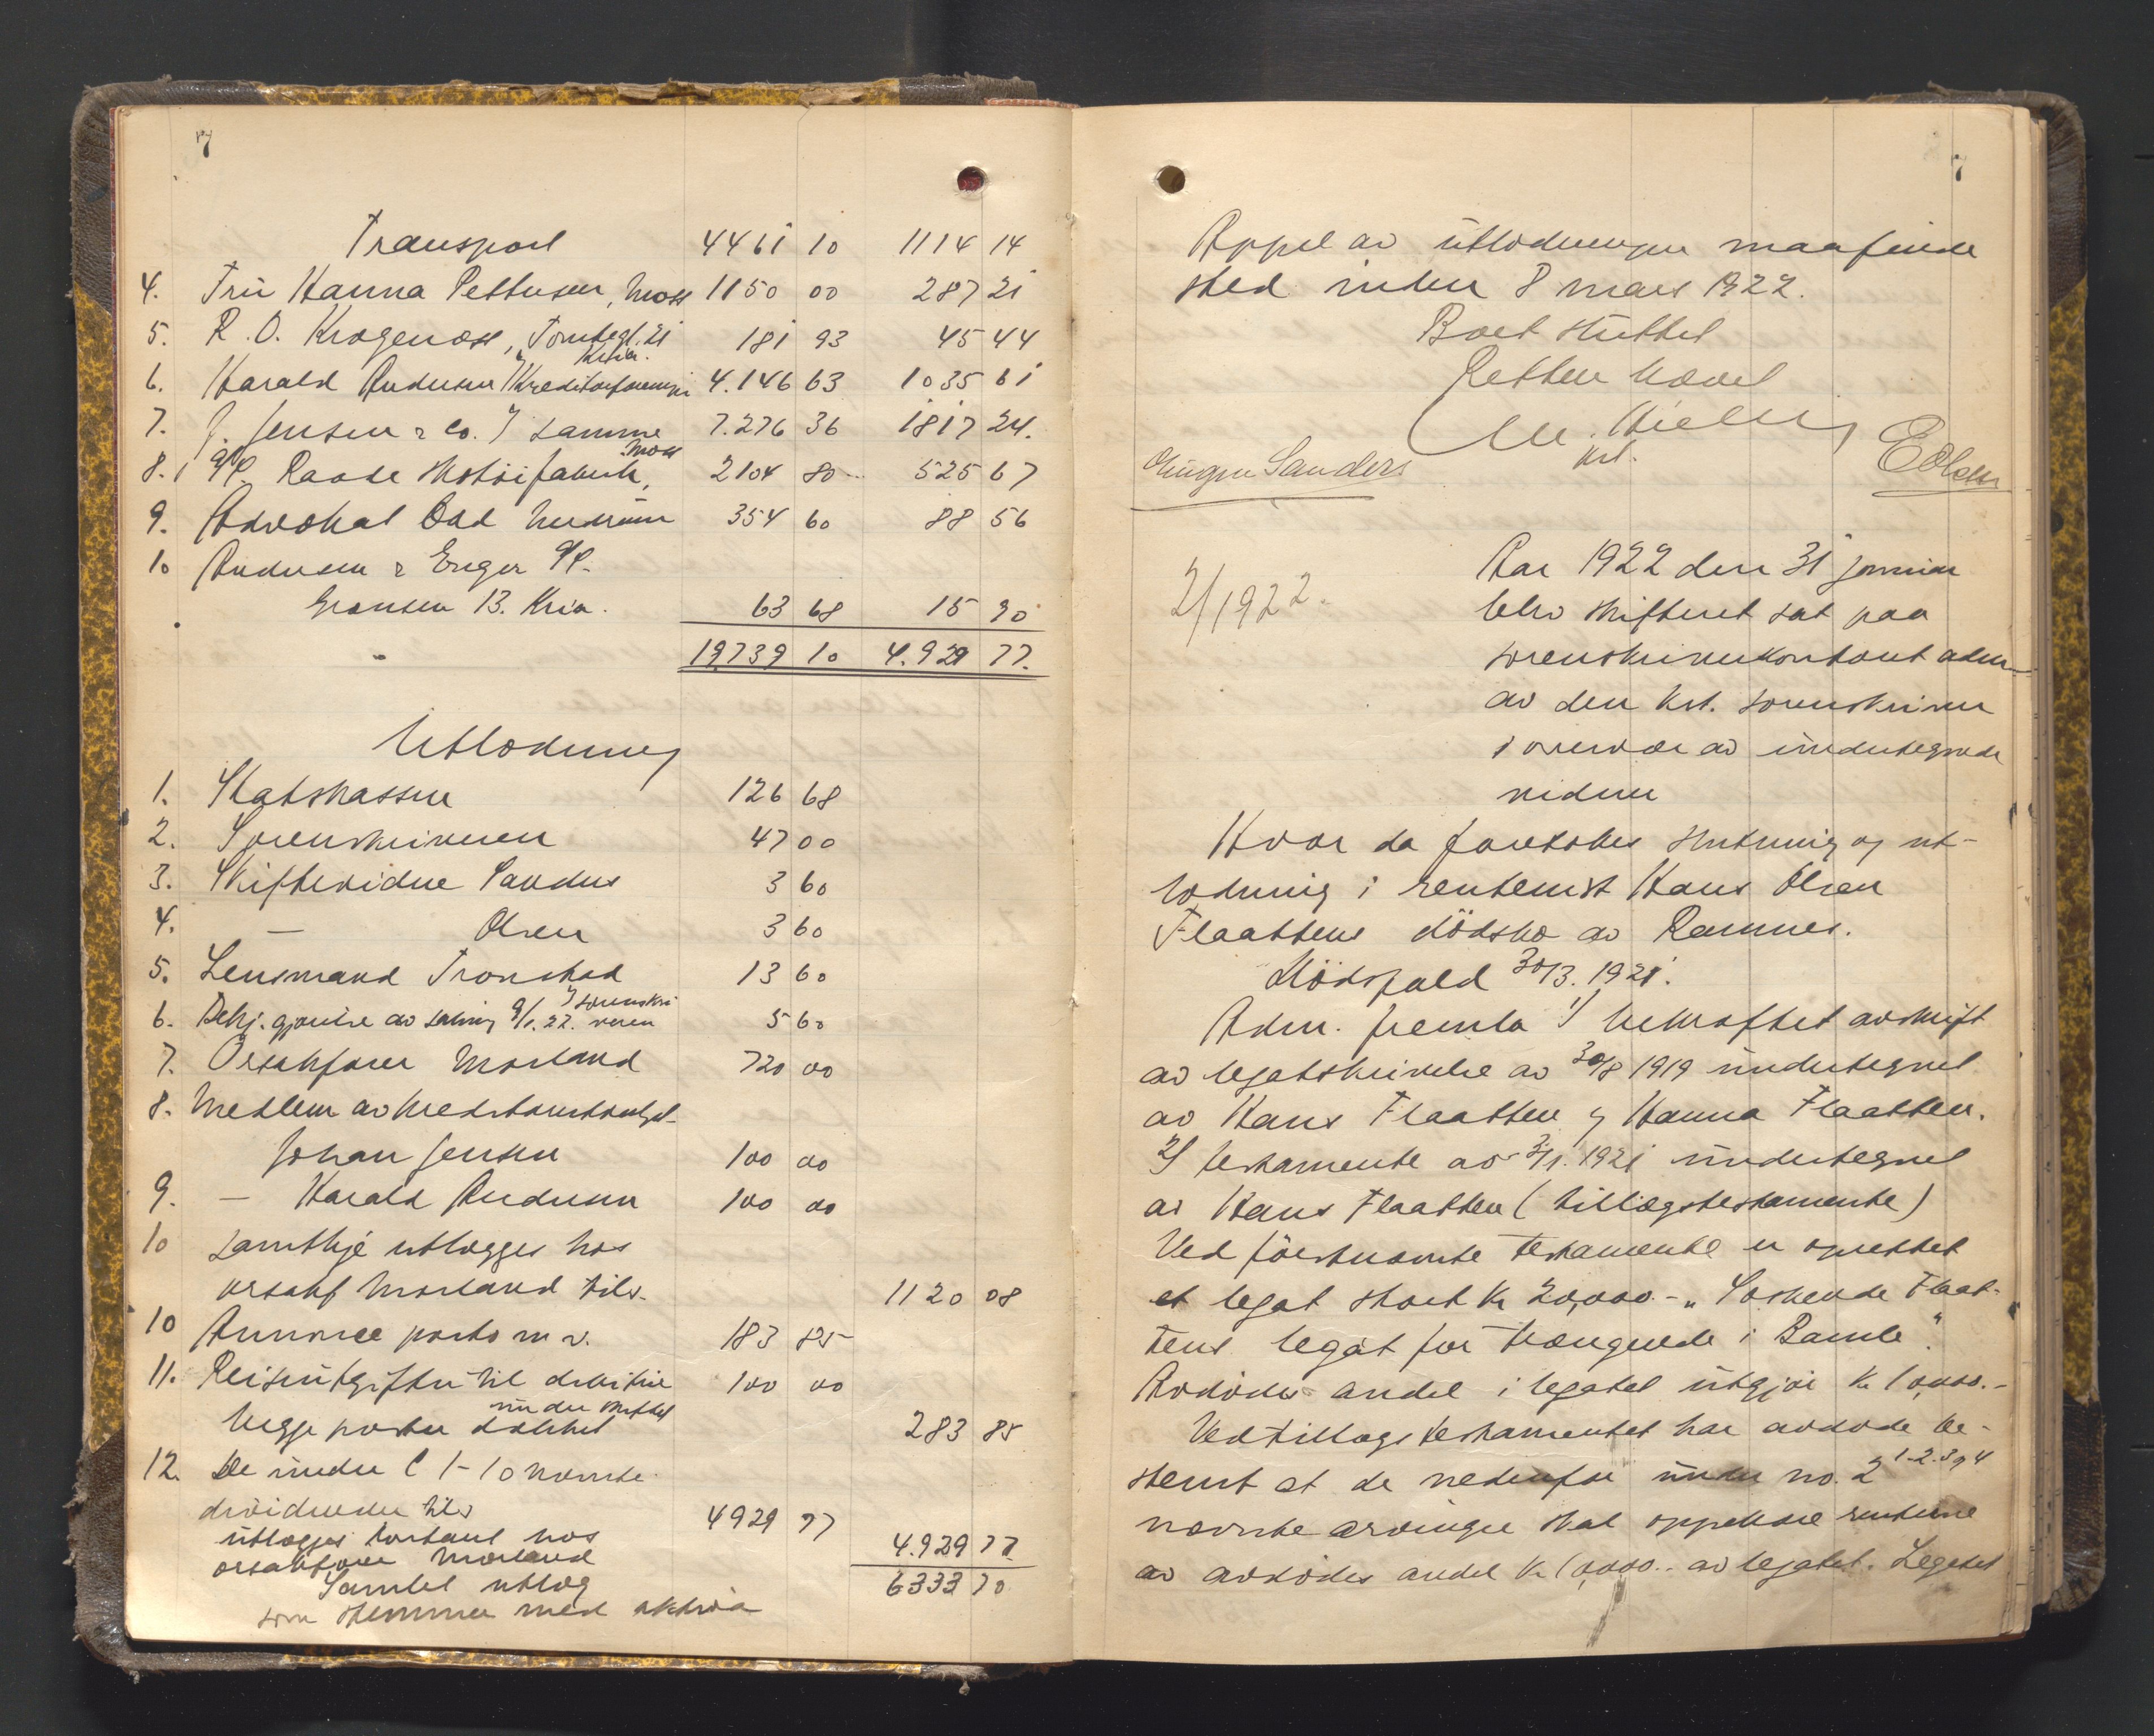 7
Transport 4461 10 1114 14
4. Fru Hanna Pettersen, Moss 1150 00 287 21
5. R. O. Krogenæs, Tomtegt. 21 Kria. 181 93 45 44
6. Harald Andersen / Kreditorforening 4.146 63 1035 61
7. J. Jensen & Co. / samme 7.276 36 1817 24.
8. A/S. Raade Skotøifabrik, Moss 2104 80 525 67
9. Advokat Odd 354 60 88 56
10 Andersen & Enger A/S.
Grænsen 13. Kria. 63 68 15 90
19739 10 4.929 77.
Utlodning
1. Statskassen 126 68
2. Sorenskriveren 47 00
3. Skiftevidne Sanders 3 60
4. — Olsen 3 60
5. Lensmand Tronstad 13 60
6. Bekj.gjørelse av samling 9/1. 22. / sorenskriveren 5 60
7. Orsakfører Morland 720 00
8. Medlem av kreditorutvalget
Johan Jensen 100 00
9. — Harald Andersen 100 00
10 samtlige utlægges hos
orsakf Morland tils. 1120 08
10 Annonce porto m v. 183 85
11. Reiseutgifter til debitor 100 00
begge poster dækket under skiftet 283 85
12. De under C 1-10 nævnte
dividender tils 4929 77
utlægges kontant hos
orsakfører Morland 4.929 77
Samlet utlæg 6333 70
som stemmer med aktiva
7
Appel av utlodningen maa finde
sted inden 8 mars 1922.
Boet sluttet
Retten hævet
Kst.
Jørgen Sanders E Olsen
2/1922.
Aar 1922 den 31 januar
blev skifteret sat paa
sorenskriverkontoret adm
av den kst. sorenskriver
i overvær av undertegnede
vidner
Hvor da foretokes slutning og ut-
lodning i rentenist Hans Olsen
Flaattens dödsbo av Ramnes.
Dödsfald 30/3. 1921.
Adm. fremla 1/ bekræftet avskrift
av legatskrivelse av 30/8 1919 undertegnet
av Hans Flaatten og Hanna Flaatten.
2/ testamente av 3/1. 1921 undertegnet
av Hans Flaatten (tillægstestamente)
Ved förstnævnte testamente er oprettet
et legat stort kr 20,000.- „Söskende Flaat-
tens legat for trængende i Bamle".
Avdødes andel i legatet utgjør kr 10,000.-
Ved tillægstestamentet har avdøde be-
stemt at de nedenfor under no. 2 1-2-3 og 4
nævnte arvinger skal oppebære renterne
av avdødes andel kr 10,000.- av legatet. Legatet